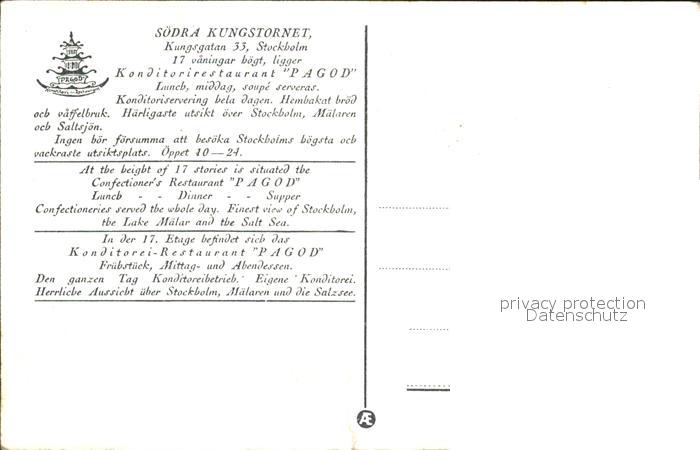 SÖDRA KUNGSTORNET,
Kungsgatan 33, Stockholm
17 våningar högt, ligger
Konditorirestaurant "PAGOD"
Lunch, middag, soupé serveras.
Konditoriservering hela dagen. Hembakat bröd
och våffelbruk. Härligaste utsikt över Stockholm, Mälaren
och Saltsjön.
Ingen bör försumma att besöka Stockholms högsta och
vackraste utsiktsplats. Öppet 10—24.
PAGOD
At the height of 17 stories is situated the
Confectioner's Restaurant "PAGOD"
Lunch - - Dinner - - Supper
Confectioneries served the whole day. Finest view of Stockholm,
the Lake Mälar and the Salt Sea.
In der 17. Etage befindet sich das
Konditorei-Restaurant "PAGOD"
Frühstück, Mittag- und Abendessen.
Den ganzen Tag Konditoreibetrieb. Eigene Konditorei.
Herrliche Aussicht über Stockholm, Mälaren und die Salzsee.
privacy protection
Datenschutz
Æ